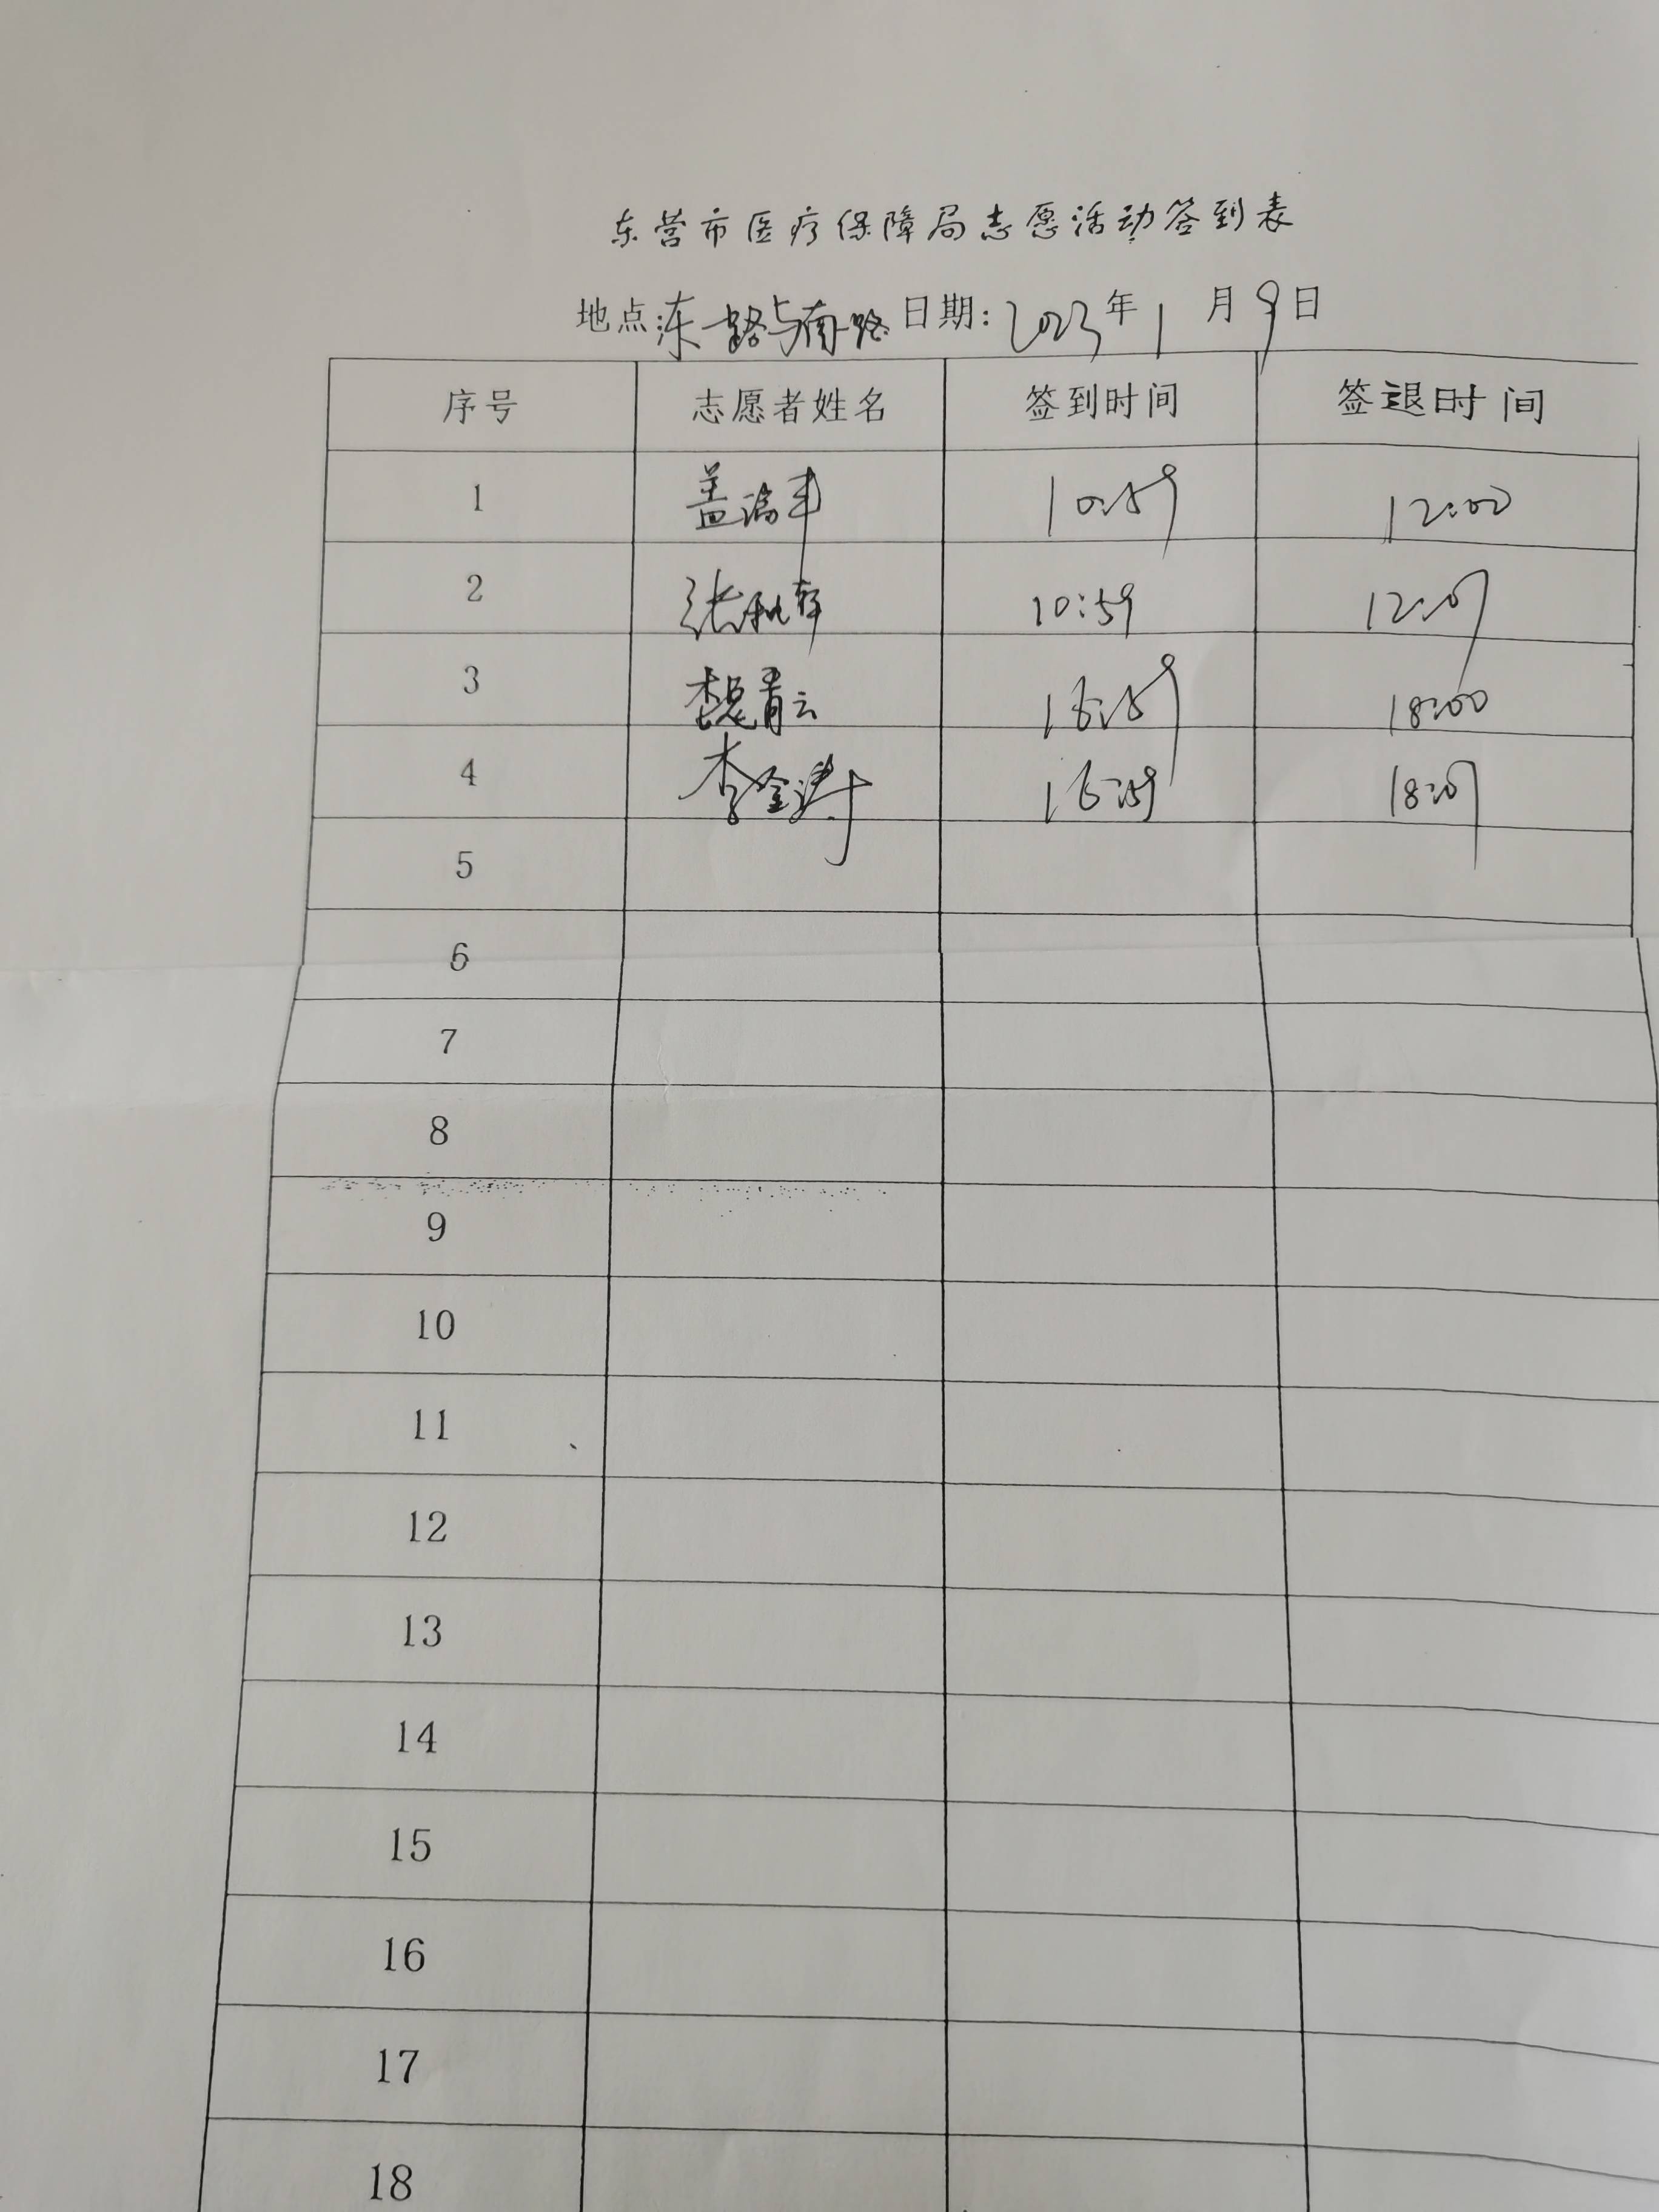 东营市医疗保障局志愿活动签到表
地点:东一路与南一路 日期:2023年1月9日
序号 志愿者姓名 签到时间 签退时间
1 盖瑞丰 10:59 12:00
2 10:59 12:07
3 魏青云 16:59 18:00
4 李金涛 16:59 18:07
5
6
7
8
9
10
11
12
13
14
15
16
17
18